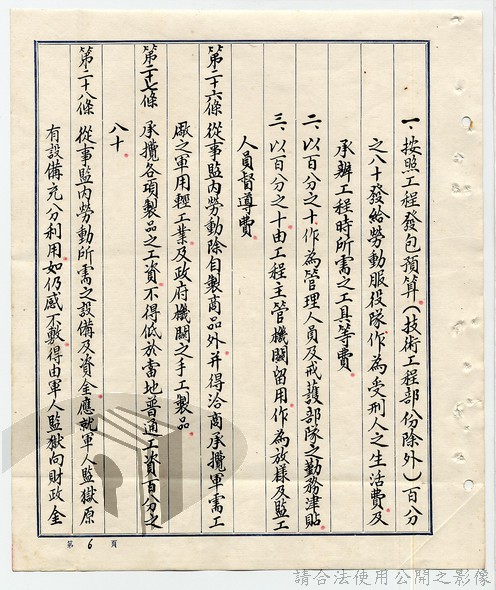 一、按照工程發包預算（技術工程部份除外）百分
之八十發給勞動服役隊作為受刑人之生活費及
承辦工程時所需之工具等費。
二、以百分之十作為管理人員及戒護部隊之勤務津貼。
三、以百分之十由工程主管機關留用作為放樣及監工
人員督導費。
第二十六條　從事監內勞動除自製商品外並得洽商承攬軍需工
廠之軍用輕工業及政府機關之手工製品。
第二十七條　承攬各項製品之工資不得低於當地普通工資百分之
八十。
第二十八條　從事監內勞動所需之設備及資金應就軍人監獄原
有設備充分利用如仍感不敷得由軍人監獄向財政金
第6頁
請合法使用公開之影像